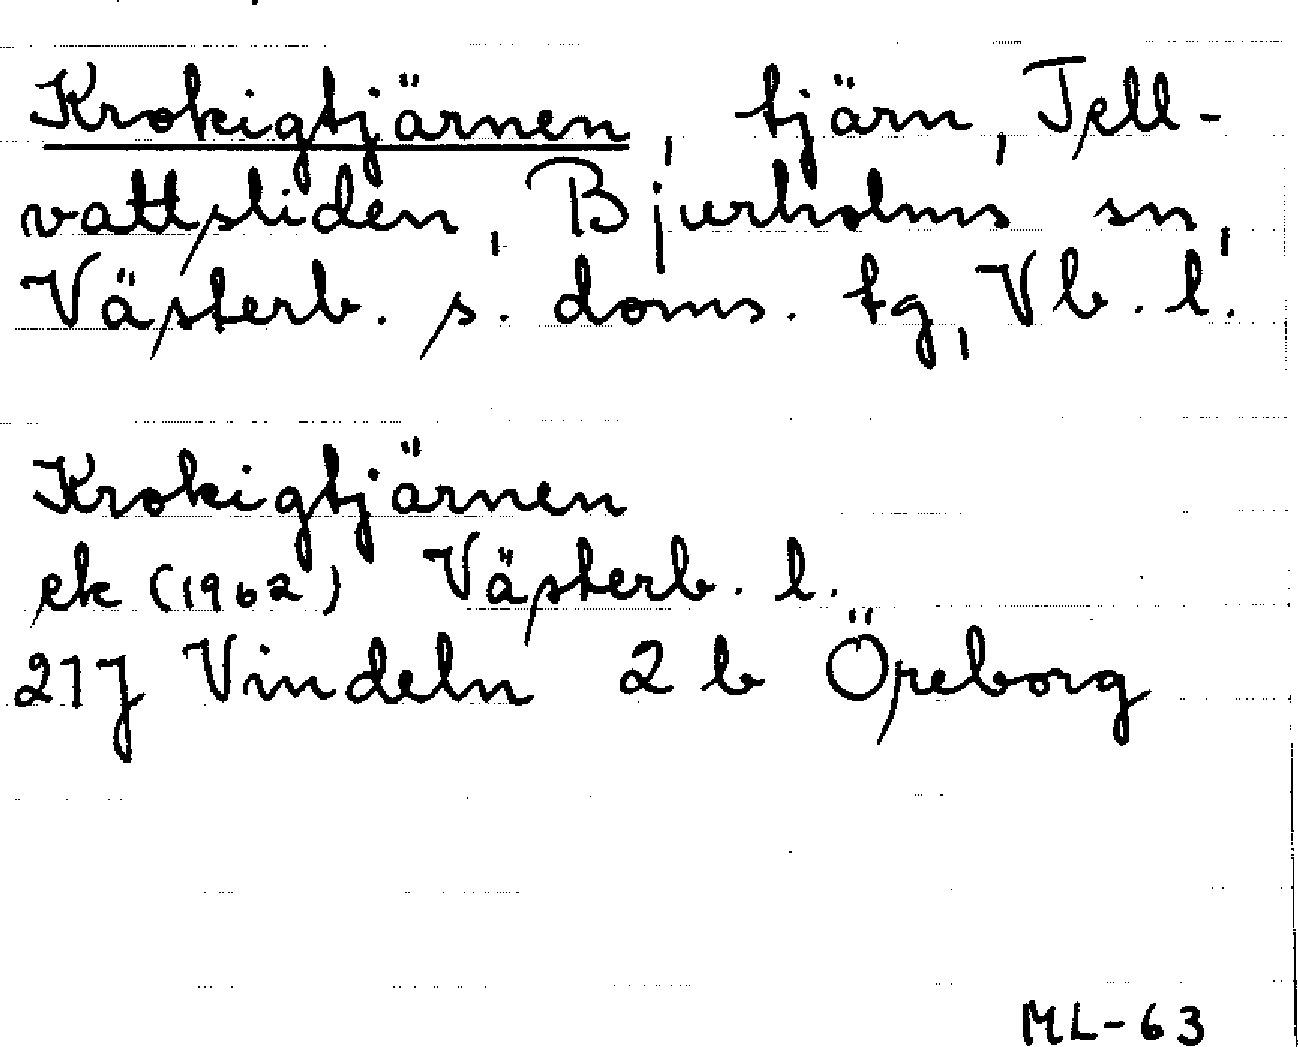 Krokigtjärnen, tjärn, Tell-
vattsliden, Bjurholms sn,
Västerb. s. doms. tg, Vb. l.
Krokigtjärnen
ek (1962) Västerb. l.
21J Vindeln 2 b Öreborg
ML-63